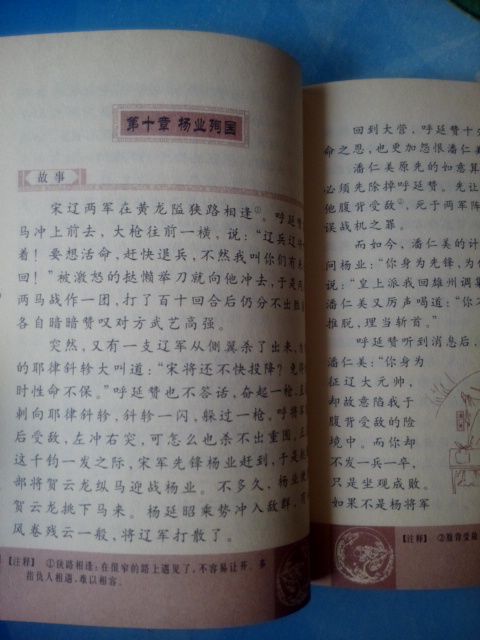 第十章 杨业殉国
故事
宋辽两军在黄龙隘狭路相逢①。呼延赞
马冲上前去，大枪往前一横，说："辽兵辽
着！要想活命，赶快退兵，不然我叫你们有
回！"被激怒的挞懒举刀就向他冲去，于是两
两马战作一团，打了百十回合后仍分不出胜
各自暗暗赞叹对方武艺高强。
突然，又有一支辽军从侧翼杀了出来，
的耶律斜轸大叫道："宋将还不快投降？免得
时性命不保。"呼延赞也不答话，奋起一枪，
刺向耶律斜轸，斜轸一闪，躲过一枪，呼将军
后受敌，左冲右突，可怎么也杀不出重围。正
这千钧一发之际，宋军先锋杨业赶到，于是
部将贺云龙纵马迎战杨业。不多久，杨业便
贺云龙挑下马来。杨延昭乘势冲入敌群，
风卷残云一般，将辽军打散了。
【注释】 ①狭路相逢：在很窄的路上遇见了，不容易让开。多
指仇人相遇，难以相容。
回到大营，呼延赞十分
命之恩，也更加怨恨潘仁美
潘仁美原先的如意算
必须先除掉呼延赞。先让
他腹背受敌②，死于两军阵
误战机之罪。
而如今，潘仁美的计
问杨业："你身为先锋，为何
说："皇上派我回雄州调集
潘仁美又厉声喝道："你
推脱，理当斩首。"
呼延赞听到消息后，
潘仁美："你身为
征辽大元帅，
却故意陷我于
腹背受敌的险
境中。而你却
不发一兵一卒，
只是坐观成败。
如果不是杨将军
【注释】 ②腹背受敌